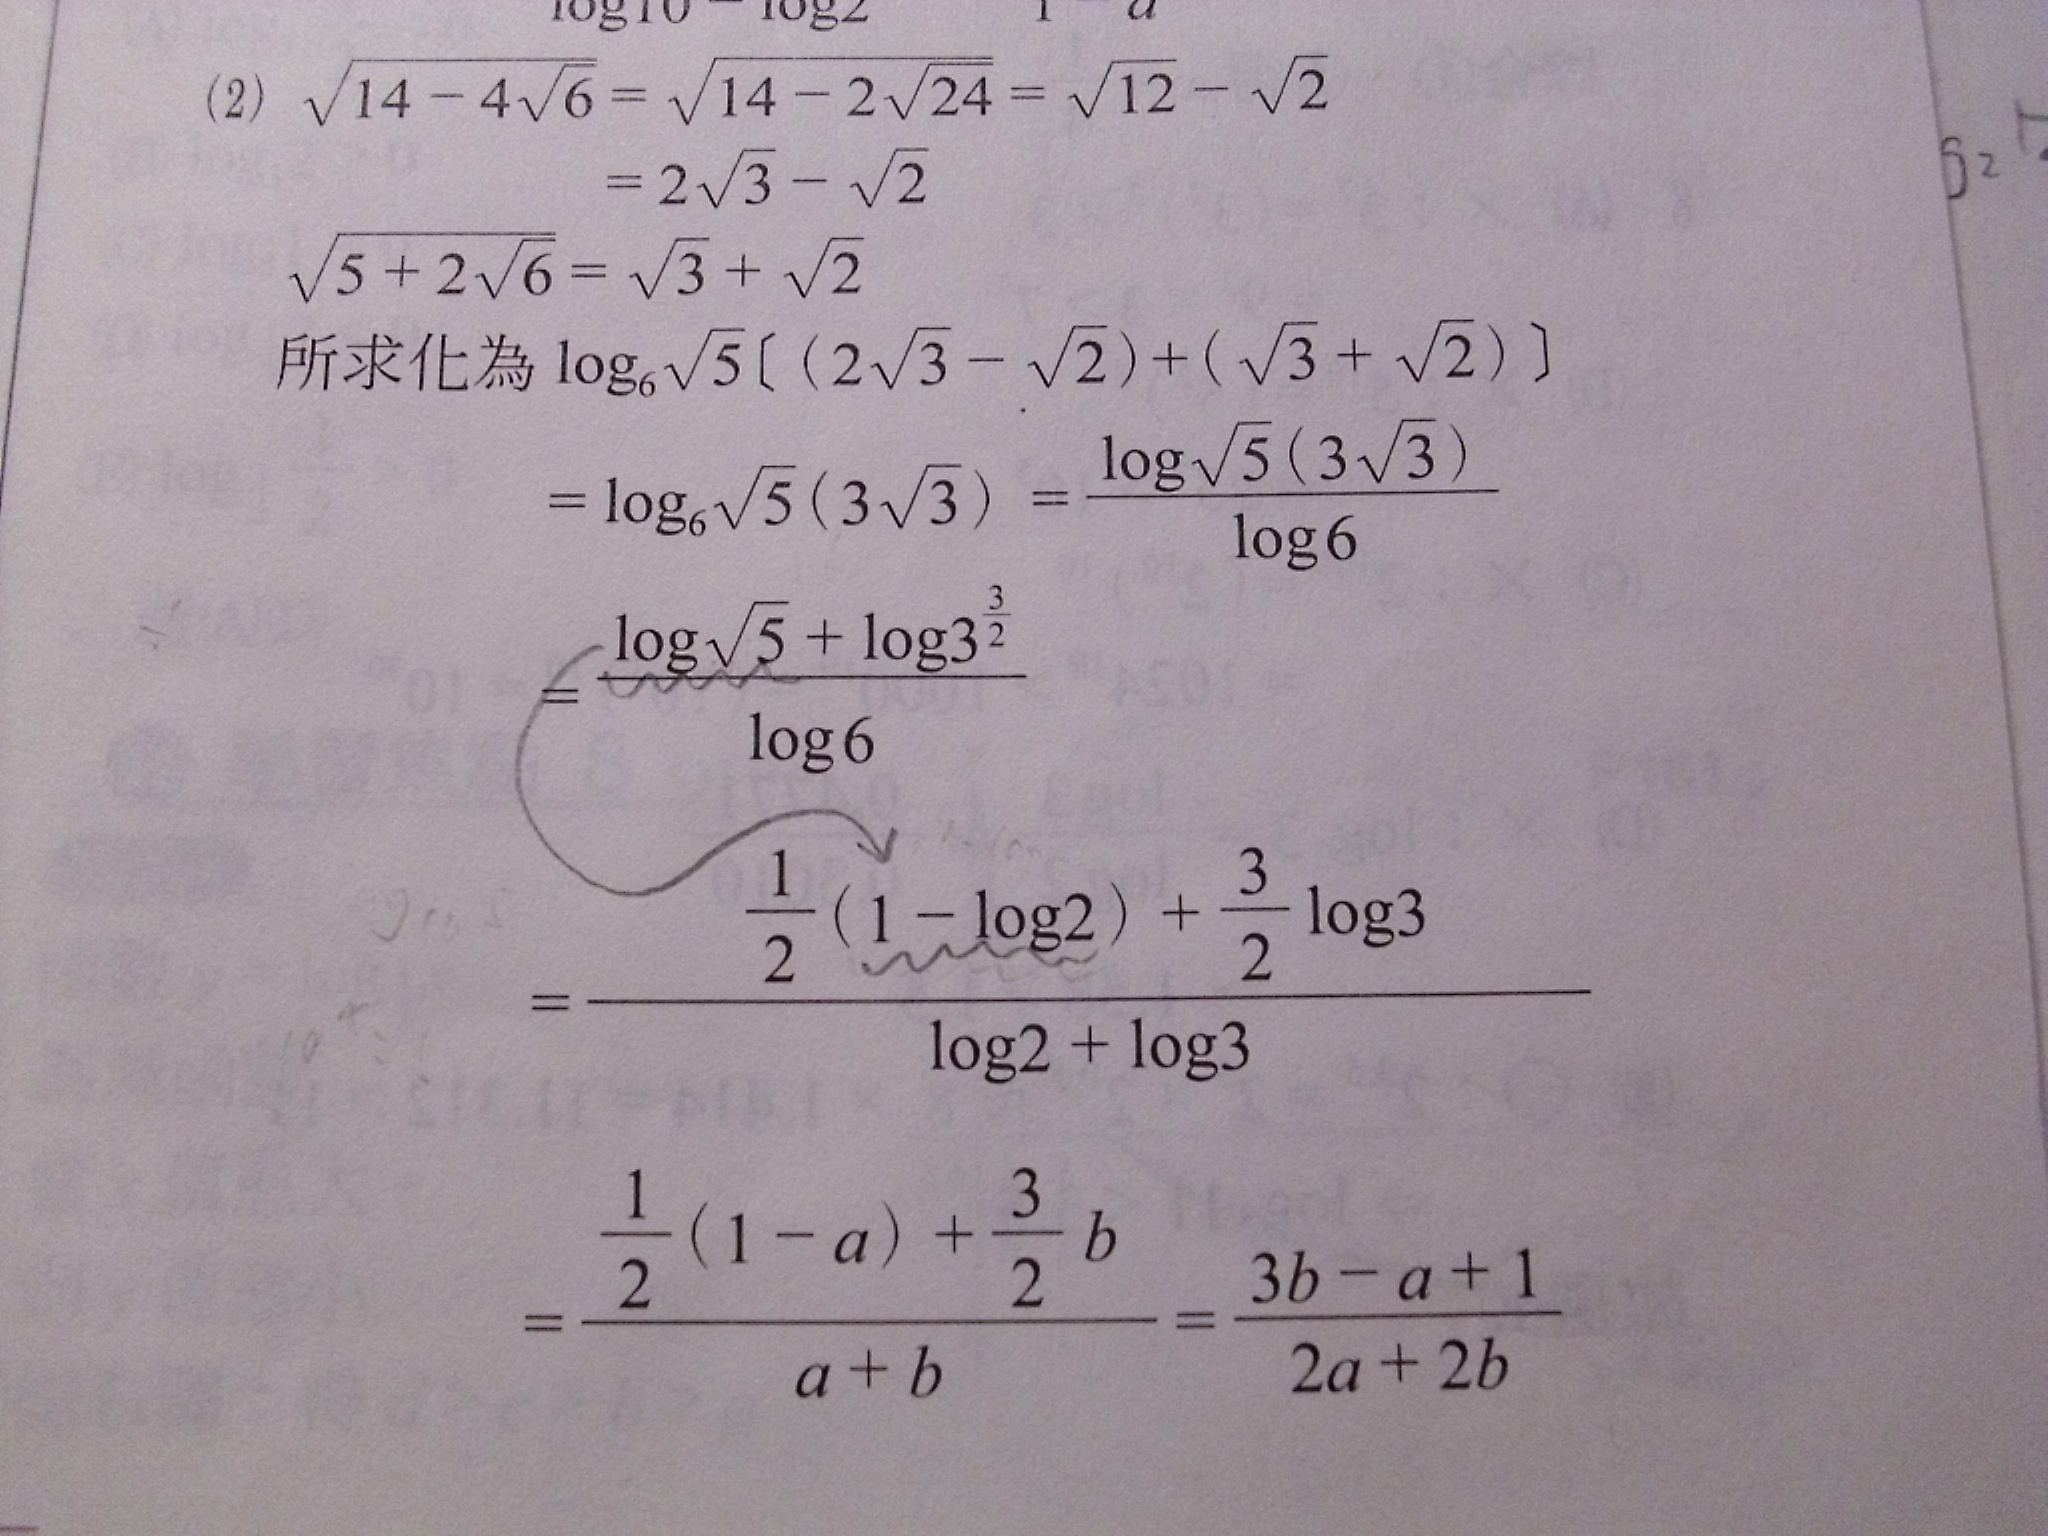 log10 − log2    1 − a
(2) √(14 − 4√6) = √(14 − 2√24) = √12 − √2
= 2√3 − √2
√(5 + 2√6) = √3 + √2
所求化為 log₆√5〔(2√3 − √2)+(√3 + √2)〕
= log₆√5(3√3) = log√5(3√3) / log6
= (log√5 + log3^(3/2)) / log6
= (1/2(1 − log2) + 3/2 log3) / (log2 + log3)
= (1/2(1 − a) + 3/2 b) / (a + b) = (3b − a + 1) / (2a + 2b)